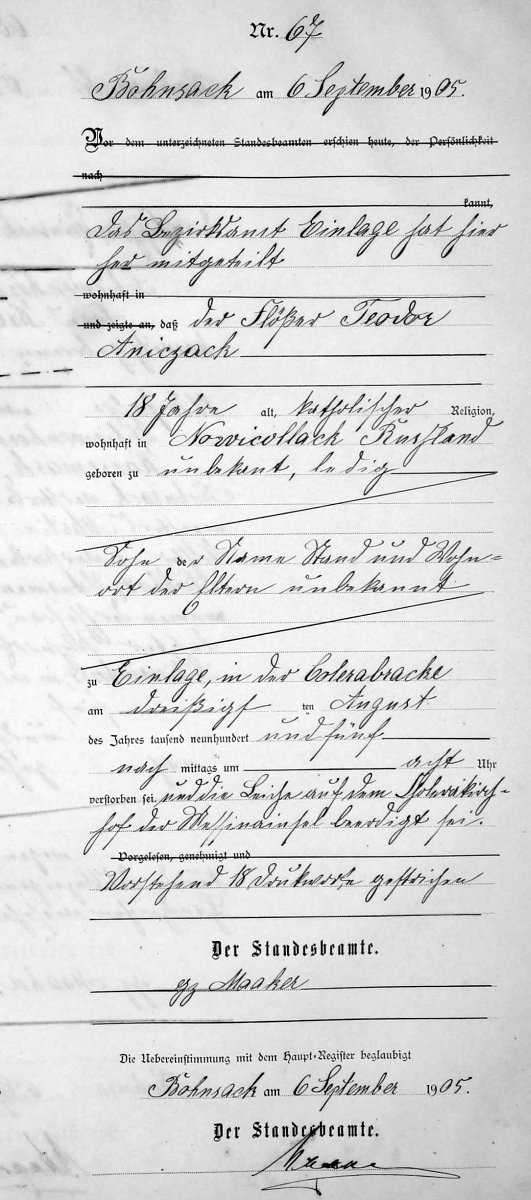 Nr. 67
Bohnsack am 6 September 1905.
Vor dem unterzeichneten Standesbeamten erschien heute, der Persönlichkeit
nach
kannt,
Das Bezirksamt Einlage hat hier
her mitgeteilt
wohnhaft in
und zeigte an, daß der Flößer Teodor
Aniczack
18 Jahre alt, katholischer Religion,
wohnhaft in Nowicollack Russland
geboren zu unbekant, ledig
Sohn der Name Stand und Wohn-
ort der Eltern unbekannt
zu Einlage, in der Colerabracke
am dreißigst ten August
des Jahres tausend neunhundert und fünf
nach mittags um acht Uhr
verstorben sei und die Leiche auf dem Cholerakirch-
hof der Messinainsel beerdigt sei.
Vorgelesen, genehmigt und
Vorstehend 18 Drukworte gestrichen
Der Standesbeamte.
gz Maaker
Die Uebereinstimmung mit dem Haupt-Register beglaubigt
Bohnsack am 6 September 1905.
Der Standesbeamte.